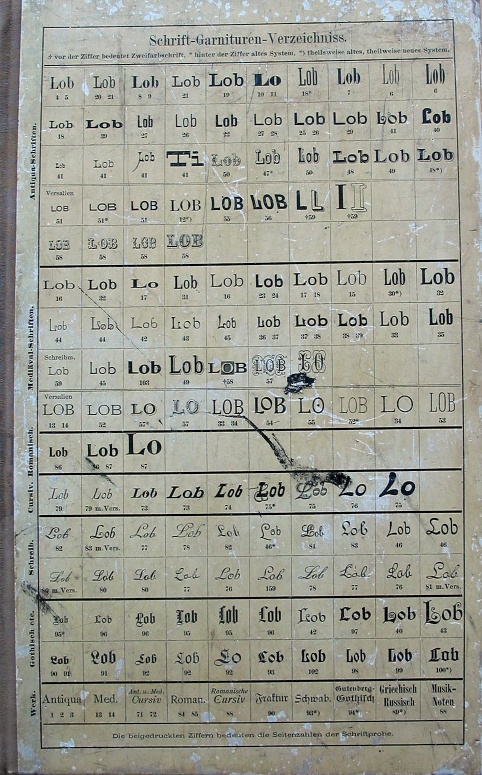 Schrift-Garnituren-Verzeichniss.
vor der Ziffer bedeutet Zweifarbschrift, * hinter der Ziffer altes System, *) theilweise altes, theilweise neues System.
Antiqua-Schriften.
Lob Lob Lob Lob Lob Lo Lob Lob Lob Lob
4 5 20 21 8 9 21 19 10 11 18* 7 6 6
Lob Lob Lob Lob Lob Lob Lob Lob Lob Lob
18 29 27 26 22 27 28 25 26 29 41 40
Lob Lob Lob Ti Lob Lob Lob Lob Lob Lob
41 41 41 41 50 47* 50 48 49 48*)
Versalien
LOB LOB LOB LOB LOB LOB L L I I
51 51* 51 52*) 55 56 †59 †59
LOB LOB LOB LOB
58 58 58 58
Mediäval-Schriften.
Lob Lob Lo Lob Lob Lob Lob Lob Lob Lob
16 32 17 31 16 23 24 17 18 15 30*) 32
Lob Lob Lob Lob Lob Lob Lob Lob Lob Lob
44 44 42 43 45 36 37 37 38 38 39 33 35
Schreibm.
Lob Lob Lob Lob LOB LOB LO
59 45 103 49 †58 57
Versalien
LOB LOB LO LO LOB LOB LO LOB LO LOB
13 14 52 57* 57 33 34 54 55 52* 34 53
Romanisch.
Lob Lob Lo
86 86 87 87
Cursiv.
Lob Lob Lob Lob Lob Lob Lob Lo Lo
79 79 m.Vers. 73 73 74 75* 75 76 75
Schreib.
Lob Lob Lob Lob Lob Lob Lob Lob Lob Lob
82 83 m.Vers. 77 78 82 46* 84 83 46 46
Lob Lob Lob Lob Lob Lob Lob Lob Lob Lob
m.Vers. 80 80 77 76 159 78 77 76 81 m.Vers.
Gothisch etc.
Lob Lob Lob Lob Lob Lob Lob Lob Lob Lob
95* 96 96 95 95 96 42 97 40 43
Lob Lob Lob Lob Lo Lob Lob Lob Lob Lob
90 91 91 92 92 92 93 102 98 99 100*)
Werk.
Antiqua Med. Ant. u. Med. Cursiv Roman. Romanische Cursiv Fraktur Schwab. Gutenberg-Gothisch Griechisch Russisch Musik-Noten
1 2 3 13 14 71 72 84 85 88 90 93*) 94* 89*) 88
Die beigedruckten Ziffern bedeuten die Seitenzahlen der Schriftprobe.